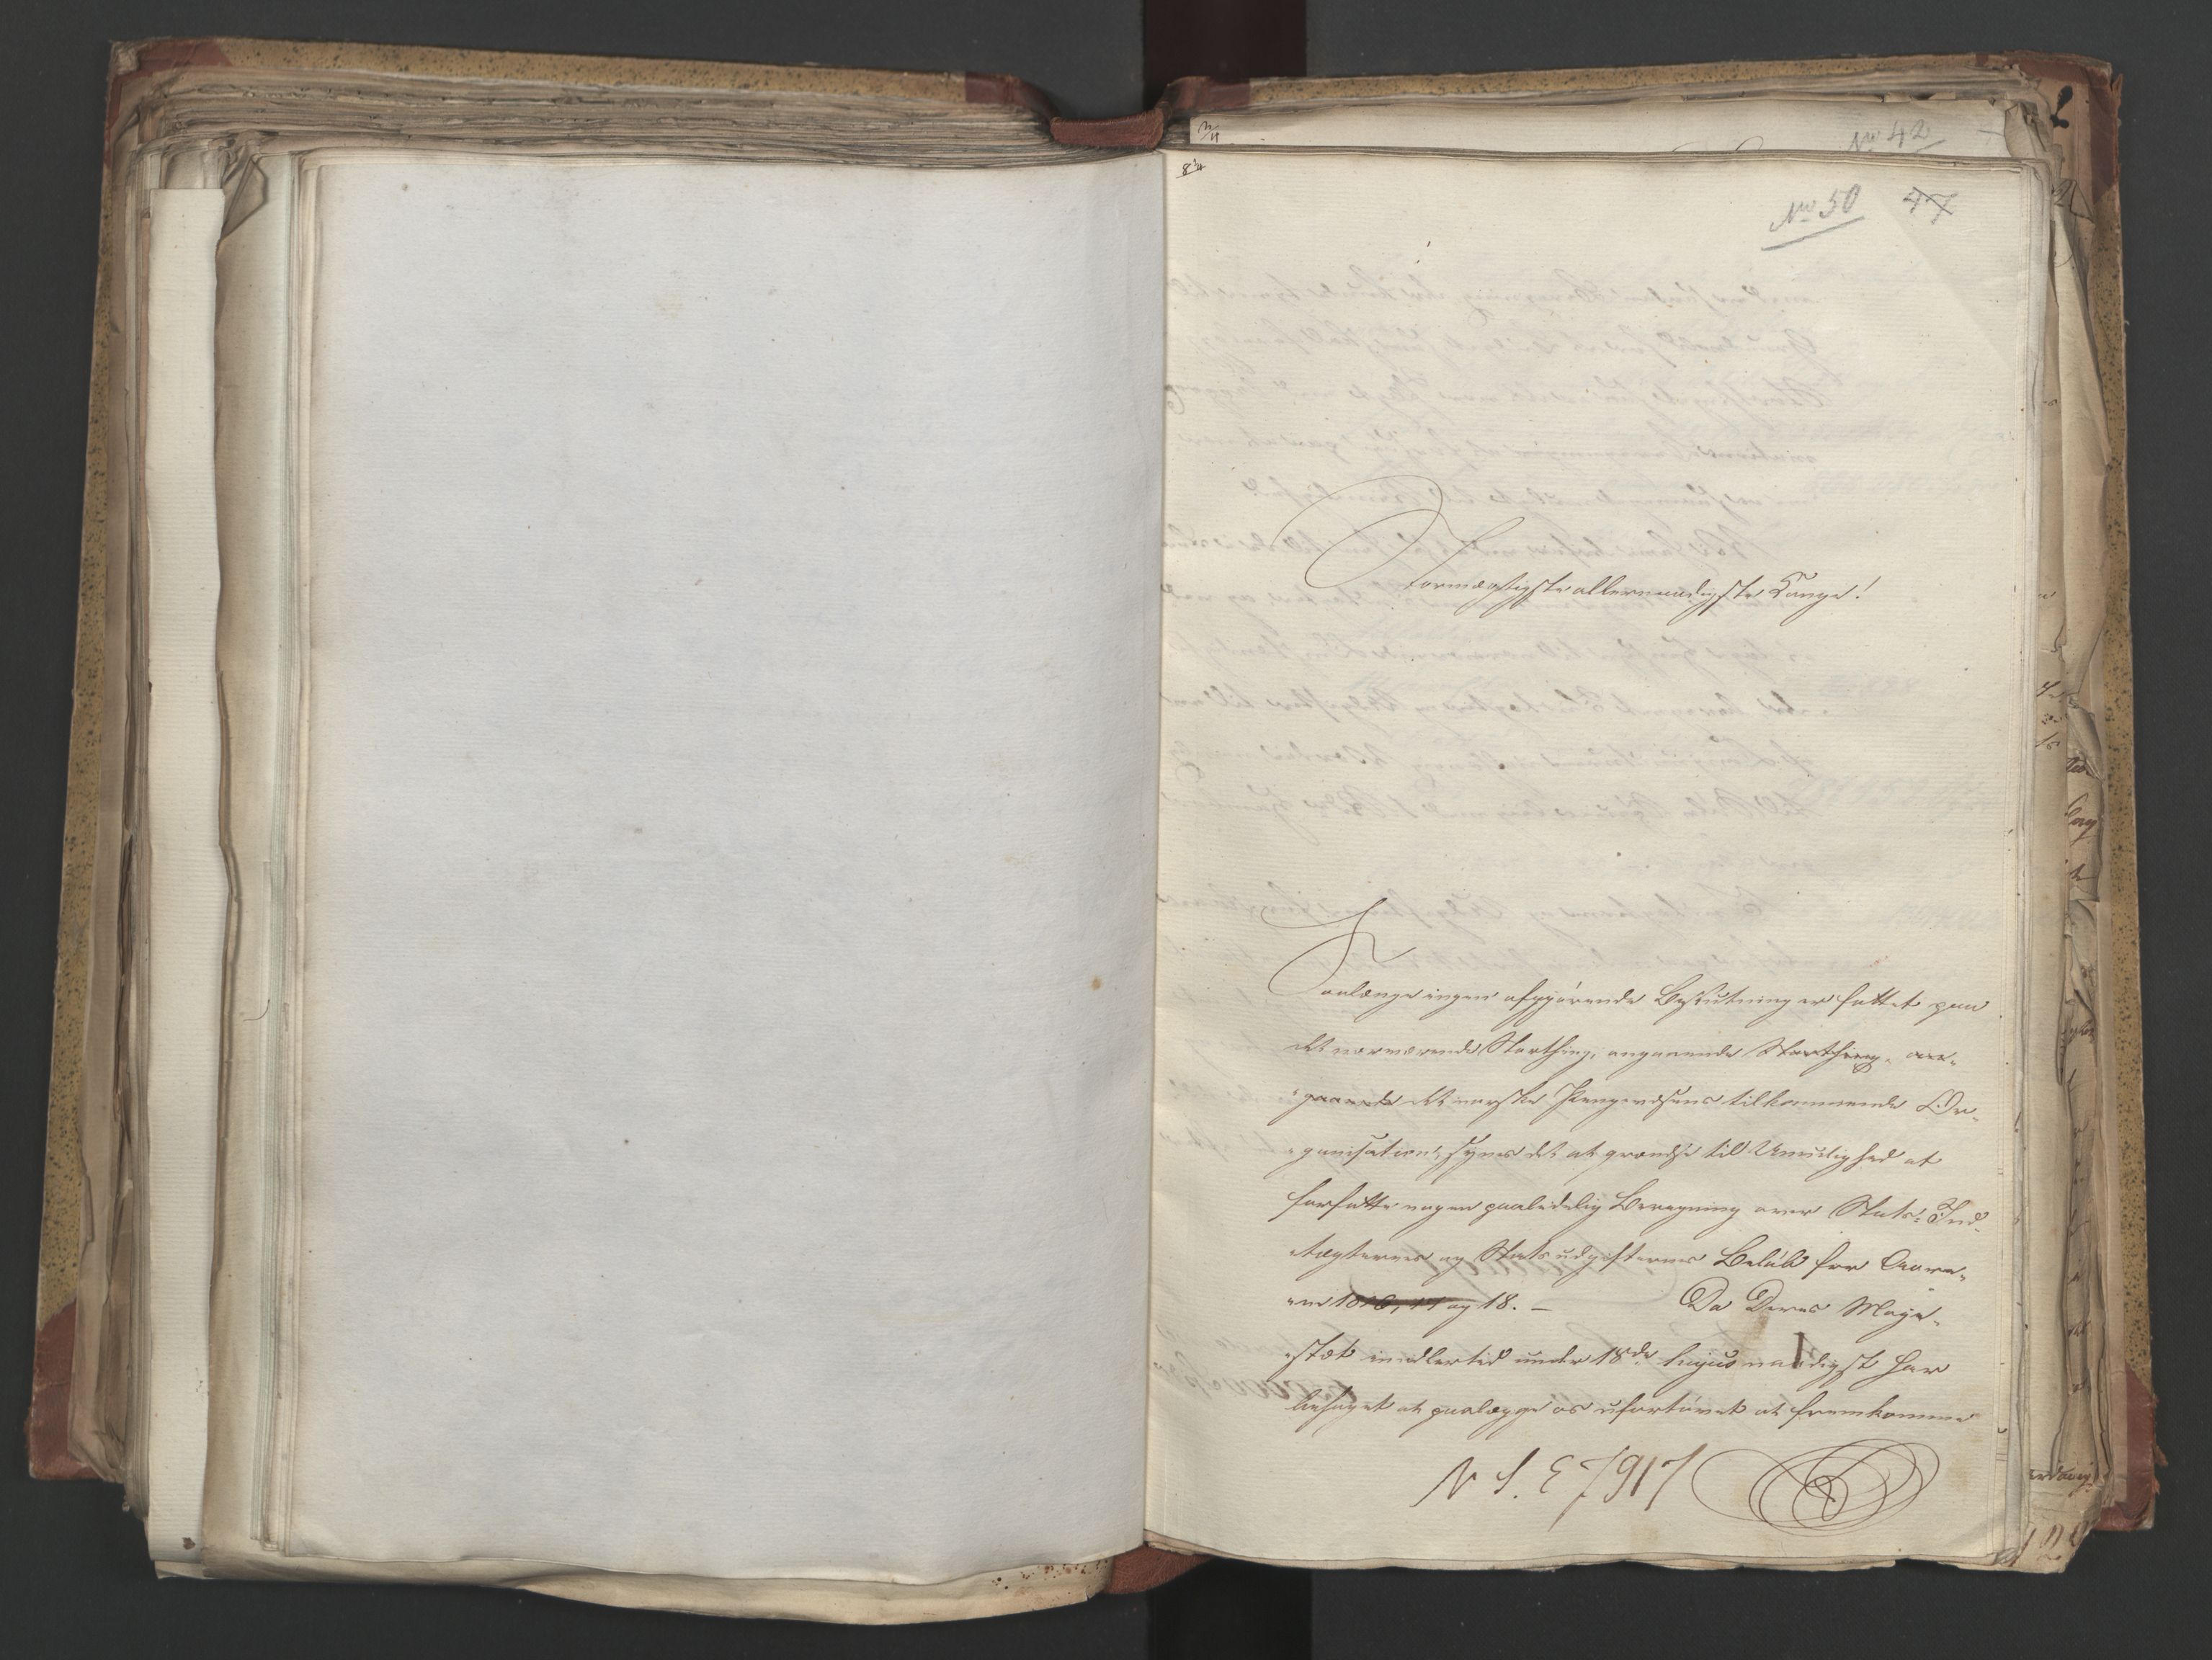 No 42
8/4
No 50 47
Stormægtigste allernaadigste Konge!
Saalænge ingen afgjørende Beslutning er fattet paa
det nærværende Storthing, angaaende Storthing, an-
gaaende det norske Pengevæsens tilkommende Or-
ganisation, synes det at grændse til Umulighed at
forfatte nogen paalidelig Beregning over Stats-Ind-
tægternes og Statsudgifternes Beløb for Aare-
ne 1816, 17 og 18. — Da Deres Maje-
stæt imidlertid under 18de hujus naadigst har
behaget at paalægge os ufortøvet at fremkomme
N S. E 7917